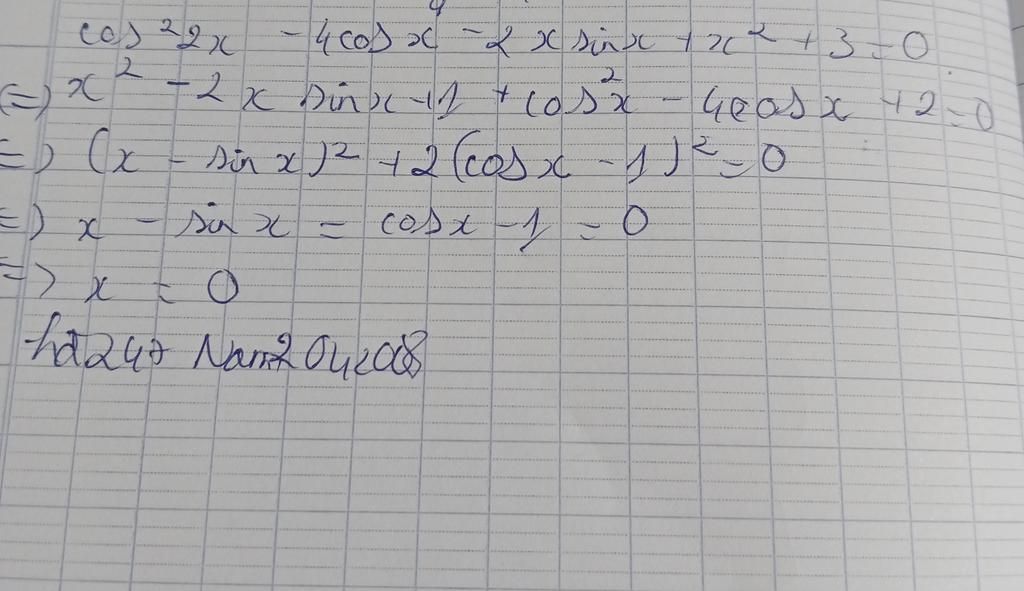 cos²2x - 4cosx - 2xsinx + x² + 3 = 0
(=) x² - 2x sinx + 1 + cos²x - 4cosx + 2 = 0
=) (x - sinx)² + 2(cosx - 1)² = 0
=) x - sinx = cosx - 1 = 0
=> x = 0